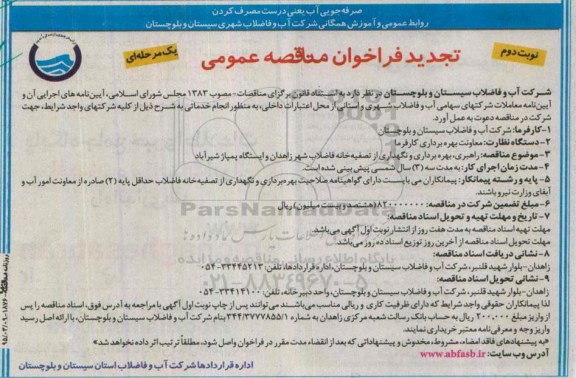 صرفه‌جویی آب یعنی درست مصرف کردن
روابط عمومی و آموزش همگانی شرکت آب و فاضلاب شهری سیستان و بلوچستان
نوبت دوم
تجدید فراخوان مناقصه عمومی
یک مرحله‌ای
شرکت آب و فاضلاب سیستان و بلوچستان در نظر دارد به استناد قانون برگزاری مناقصات - مصوب ۱۳۸۳ مجلس شورای اسلامی، آیین‌نامه های اجرایی آن و
آیین‌نامه معاملات شرکتهای سهامی آب و فاضلاب شهری و استانی از محل اعتبارات داخلی، به منظور انجام خدماتی به شرح ذیل از کلیه شرکتهای واجد شرایط، جهت
شرکت در مناقصه دعوت به عمل آورد.
۱- کارفرما: شرکت آب و فاضلاب سیستان و بلوچستان
۲- دستگاه نظارت: معاونت بهره برداری کارفرما
۳- موضوع مناقصه: راهبری، بهره برداری و نگهداری از تصفیه خانه فاضلاب شهر زاهدان و ایستگاه پمپاژ شیرآباد
۴- مدت زمان اجرای کار: به مدت سه (۳) سال شمسی پیش بینی شده است.
۵- پایه و رشته پیمانکار: پیمانکاران می بایست دارای گواهینامه صلاحیت بهره برداری و نگهداری از تصفیه خانه فاضلاب حداقل پایه (۲) صادره از معاونت امور آب و
آبفای وزارت نیرو باشند.
۶- مبلغ تضمین شرکت در مناقصه: ۸۲۰۰۰۰۰۰۰ (هشتصد و بیست میلیون) ریال
۷- تاریخ و مهلت تهیه و تحویل اسناد مناقصه:
مهلت تهیه اسناد مناقصه به مدت هفت روز از انتشار نوبت اول آگهی می باشد.
مهلت تحویل اسناد مناقصه از آخرین روز توزیع اسناد ده روز می باشد.
۸- نشانی دریافت اسناد مناقصه:
زاهدان- بلوار شهید قلنبر، شرکت آب و فاضلاب سیستان و بلوچستان، اداره قراردادها، تلفن: ۳۳۴۴۵۲۱۳-۰۵۴
۹- نشانی تحویل اسناد مناقصه:
زاهدان- بلوار شهید قلنبر، شرکت آب و فاضلاب سیستان و بلوچستان، واحد دبیرخانه، تلفن ۳۳۴۱۴۱۰۰-۰۵۴
لذا پیمانکاران حقوقی واجد شرایط که دارای ظرفیت کاری و ریالی مناسب می‌باشند می توانند پس از چاپ نوبت اول آگهی با مراجعه به آدرس فوق، اسناد مناقصه را پس
از واریز مبلغ ۲۰۰,۰۰۰ ریال به حساب بانک رسالت شعبه مرکزی زاهدان به شماره ۳۴۴/۳۷۷۷۸۵۵/۱ بنام شرکت آب و فاضلاب سیستان و بلوچستان، با ارائه اصل رسید
واریز وجه و معرفی نامه معتبر خریداری نمایند.
«به پیشنهادهای فاقد امضاء، مشروط، مخدوش و پیشنهاداتی که بعد از انقضاء مدت مقرر در فراخوان واصل شود، مطلقاً ترتیب اثر داده نخواهد شد»
آدرس وب سایت: www.abfasb.ir
اداره قراردادها شرکت آب و فاضلاب استان سیستان و بلوچستان
ParsNamadData